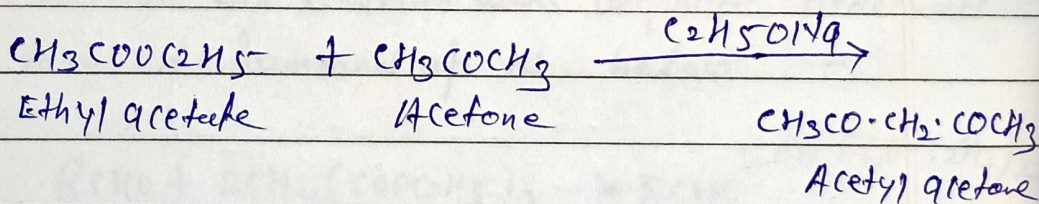 C2H5ONa
CH3COOC2H5 + CH3COCH3 →
Ethyl acetate Acetone
CH3CO·CH2·COCH3
Acetyl acetone